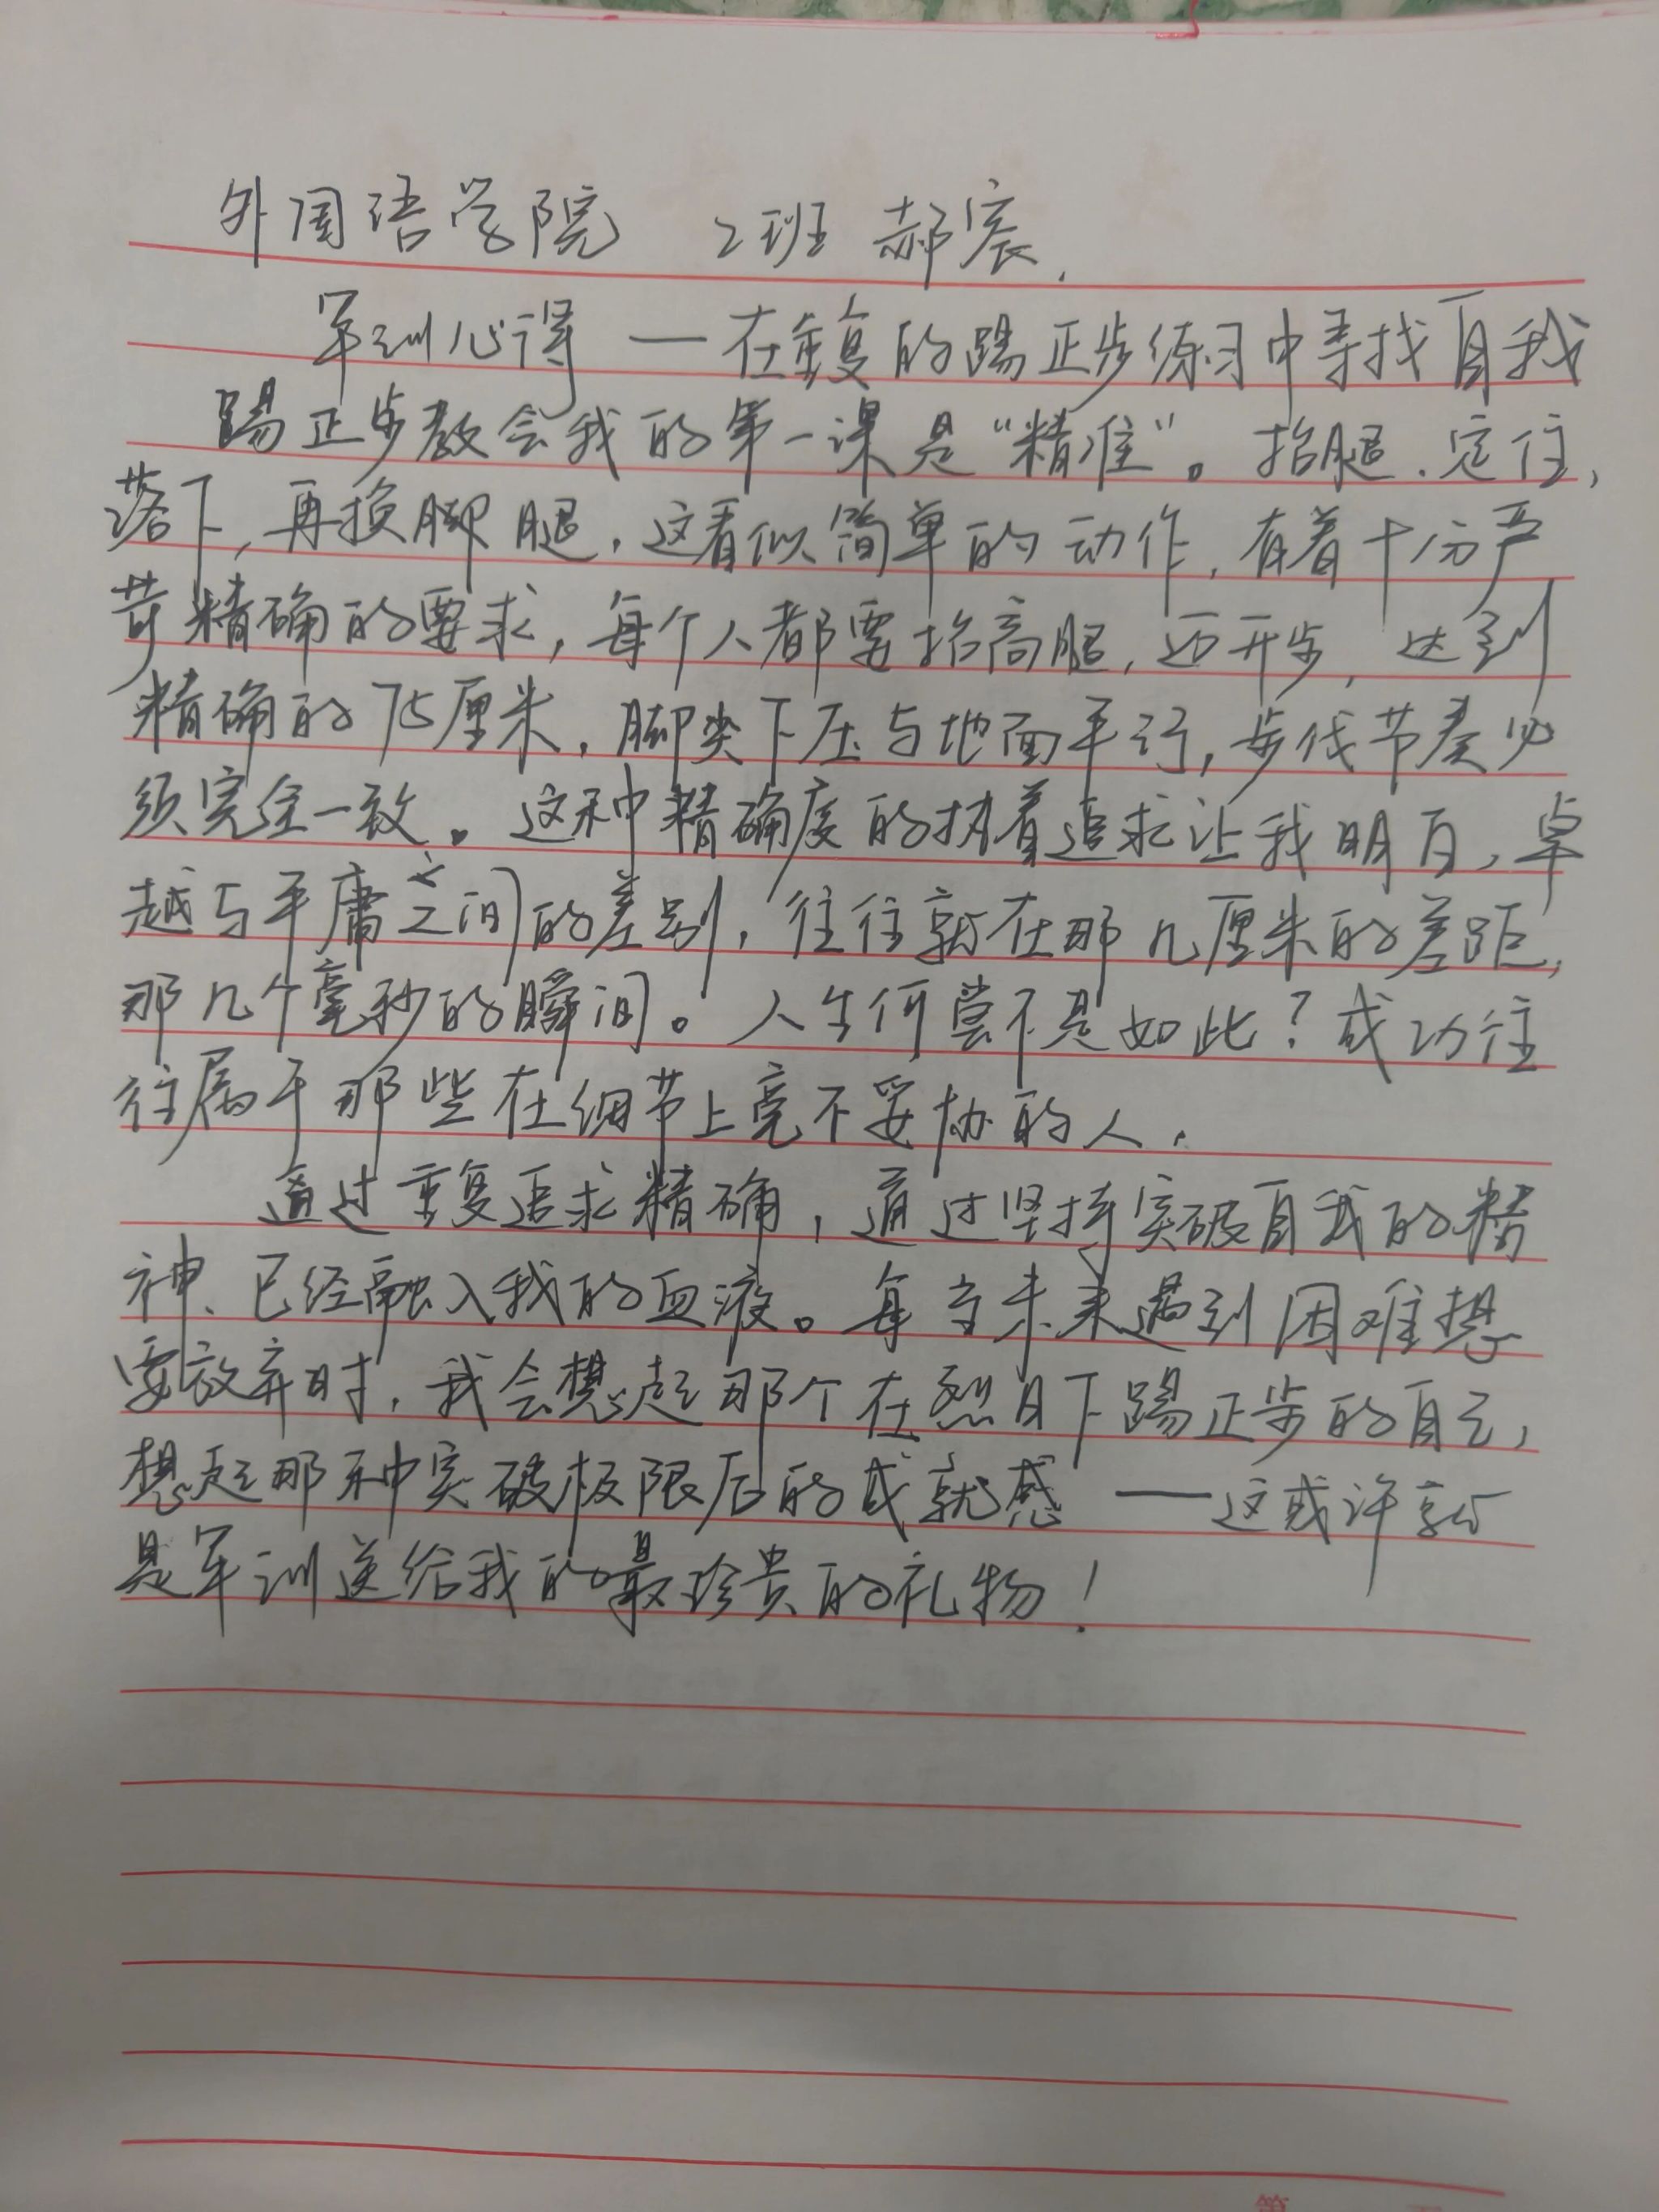 外国语学院 2班 郝宸.
军训心得 — 在重复的踢正步练习中寻找自我
踢正步教会我的第一课是“精准”。抬腿、定住,
落下,再换脚腿,这看似简单的动作,有着十分严
苛精确的要求,每个人都要抬高腿,迈开步,达到
精确的75厘米,脚尖下压与地面平行,步伐节奏必
须完全一致。这种精确度的执着追求让我明白,卓
越与平庸之间的差别,往往就在那几厘米的差距,
那几个毫秒的瞬间。人生何尝不是如此?成功往
往属于那些在细节上毫不妥协的人.
通过重复追求精确,通过坚持突破自我的精
神、已经融入我的血液。每当未来遇到困难想
要放弃时,我会想起那个在烈日下踢正步的自己,
想起那种突破极限后的成就感 — 这或许就
是军训送给我的最珍贵的礼物!